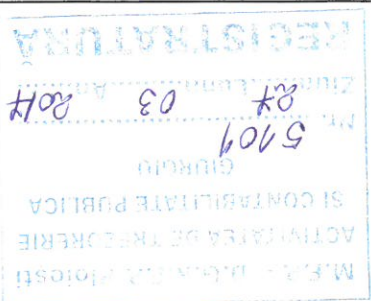 M.F.P. - D.G.R.F.P. Ploiesti
ACTIVITATEA DE TREZORERIE
SI CONTABILITATE PUBLICA
GIURGIU
Nr. 5101
Ziua 27 Luna 03 An 2017
REGISTRATURĂ